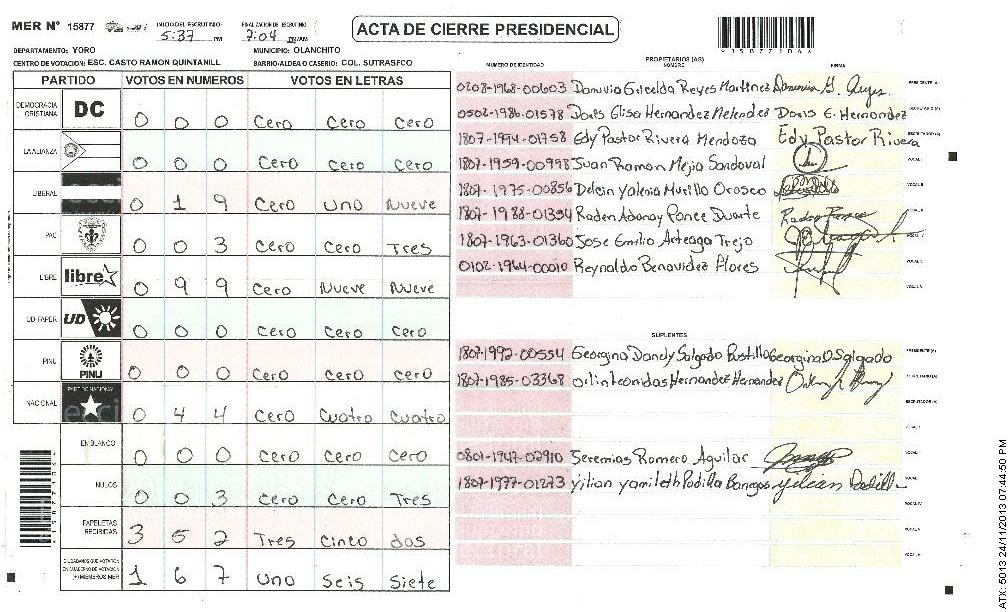 MER N° 15877
INICIO DEL ESCRUTINIO: 5:37 PM
FINALIZACION DE ESCRUTINIO: 7:04
ACTA DE CIERRE PRESIDENCIAL
DEPARTAMENTO: YORO
MUNICIPIO: OLANCHITO
CENTRO DE VOTACION: ESC. CASTO RAMON QUINTANILL
BARRIO/ALDEA O CASERIO: COL. SUTRASFCO
PARTIDO VOTOS EN NUMEROS VOTOS EN LETRAS
DEMOCRACIA CRISTIANA DC 0 0 0 Cero Cero Cero
LA ALIANZA 0 0 0 Cero Cero Cero
LIBERAL 0 1 9 Cero Uno Nueve
PAC 0 0 3 Cero Cero Tres
LIBRE libre 0 9 9 Cero Nueve Nueve
UD-FAPER UD 0 0 0 Cero Cero Cero
PINU PINU 0 0 0 Cero Cero Cero
NACIONAL PARTIDO NACIONAL 0 4 4 Cero Cuatro Cuatro
EN BLANCO 0 0 0 Cero Cero Cero
NULOS 0 0 3 Cero Cero Tres
PAPELETAS RECIBIDAS 3 5 2 Tres Cinco dos
CIUDADANOS QUE VOTARON EN CUADERNO DE VOTACION (+) MIEMBROS MER 1 6 7 Uno Seis Siete
PROPIETARIOS (AS)
NUMERO DE IDENTIDAD NOMBRE FIRMA
0208-1968-00603 Danuvia Griselda Reyes Martinez PRESIDENTE (A)
0502-1986-01578 Doris Elisa Hernandez Melendez Doris E. Hernandez SECRETARIO (A)
1807-1994-01758 Edy Pastor Rivera Mendoza Edy Pastor Rivera ESCRUTADOR (A)
1807-1959-00998 Juan Ramon Mejia Sandoval VOCAL I
1807-1975-00856 Delcin Yolenia Murillo Orosco VOCAL II
1807-1988-01354 Raden Adonay Ponce Duarte Raden Ponce
1807-1963-01360 Jose Emilio Arteaga Trejo
0102-1964-00010 Reynaldo Benavidez Flores
SUPLENTES
1807-1992-00554 Georgina Danely Salgado Bustillo Georgina D Salgado PRESIDENTE (A)
1807-1985-03368 Orlin Leonidas Hernandez Hernandez SECRETARIO (A)
ESCRUTADOR (A)
0801-1947-02910 Jeremias Romero Aguilar
1807-1977-01273 Yilian Yamileth Padilla Banegas Yilian Padilla
ATX: 5013 24/11/2013 07:44:50 PM